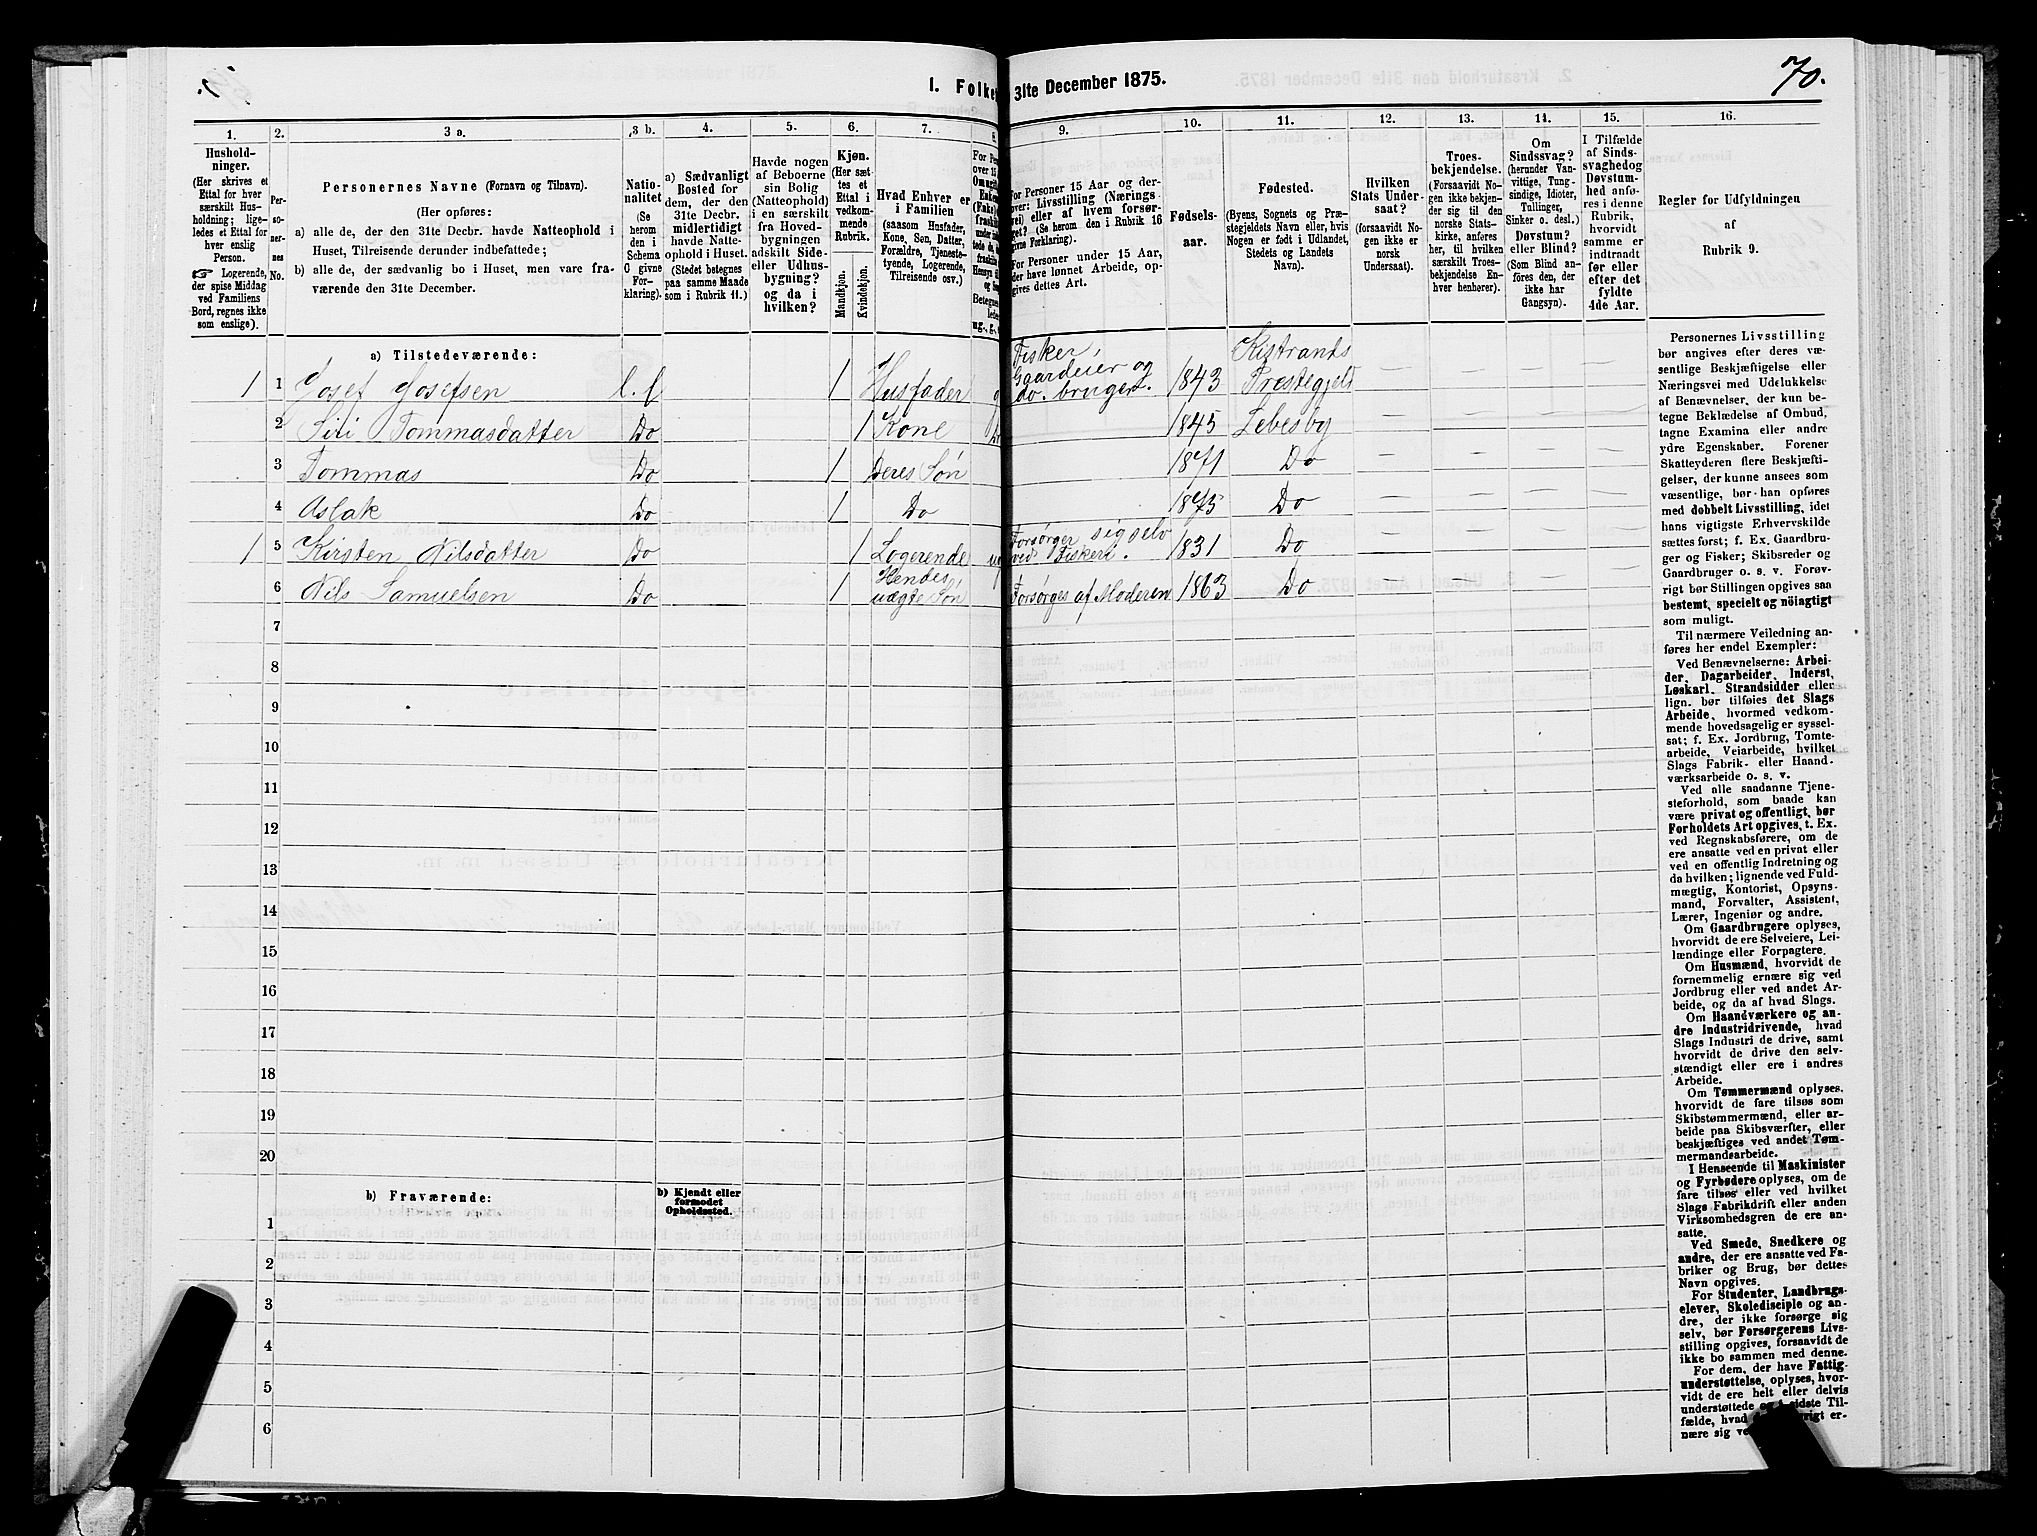 1. Folke
31te December 1875.
70.
1.
2.
3 a.
3 b.
4.
5.
6.
7.
8.
9.
10.
11.
12.
13.
14.
15.
16.
Hushold-
ninger.
(Her skrives et
Ettal for hver
særskilt Hus-
holdning; lige-
ledes et Ettal for
hver enslig
Person.
☞ Logerende,
der spise Middag
ved Familiens
Bord, regnes ikke
som enslige).
Per-
so-
ner-
nes
No.
Personernes Navne (Fornavn og Tilnavn).
(Her opføres:
a) alle de, der den 31te Decbr. havde Natteophold i
Huset, Tilreisende derunder indbefattede;
b) alle de, der sædvanlig bo i Huset, men vare fra-
værende den 31te December.
Natio-
nalitet
(Se
herom
den i
Schema
O givne
For-
klaring).
a) Sædvanligt
Bosted for
dem, der den
31te Decbr.
midlertidigt
havde Natte-
ophold i Huset.
(Stedet betegnes
paa samme Maade
som i Rubrik 11.)
Havde nogen
af Beboerne
sin Bolig
(Natteophold)
i en særskilt
fra Hoved-
bygningen
adskilt Side-
eller Udhus-
bygning?
og da i
hvilken?
Kjøn.
(Her sæt-
tes et
Ettal i
vedkom-
mende
Rubrik.
Mandkjøn.
Kvindekjøn.
Hvad Enhver er
i Familien
(saasom Husfader,
Kone, Søn, Datter,
Forældre, Tjeneste-
tyende, Logerende,
Tilreisende osv.)
For Personer 15 Aar og der-
over: Livsstilling (Nærings-
vei) eller af hvem forsør-
get? (Se herom den i Rubrik 16
givne Forklaring).
For Personer under 15 Aar,
der have lønnet Arbeide, op-
gives dettes Art.
Fødsels-
aar.
Fødested.
(Byens, Sognets og Præ-
stegjeldets Navn eller, hvis
Nogen er født i Udlandet,
Stedets og Landets
Navn).
Hvilken
Stats Under-
saat?
(forsaavidt No-
gen ikke er
norsk
Undersaat).
Troes-
bekjendelse.
(Forsaavidt No-
gen ikke bekjen-
der sig til den
norske Stats-
kirke, anføres
her, til hvilken
særskilt Troes-
bekjendelse En-
hver henhører).
Om
Sindssvag?
(herunder Van-
vittige, Tung-
sindige, Idioter,
Tullinger,
Sinker o. desl.)
Døvstum?
eller Blind?
(Som Blind an-
føres den, der
ikke har
Gangsyn).
I Tilfælde
af Sinds-
svaghed og
Døvstum-
hed anfø-
res i denne
Rubrik,
hvorvidt
samme er
indtraadt
før eller
efter det
fyldte
4de Aar.
Regler for Udfyldningen
af
Rubrik 9.
a) Tilstedeværende:
1 1 Josef Josefsen l. f 1 Husfader Fisker, Gaardeier og do. bruger. 1843 Kistrands Præstegjeld — — — —
2 Siri Tommasdatter Do 1 Kone 1845 Lebesby — — — —
3 Tommas Do 1 Deres Søn 1871 Do — — — —
4 Aslak Do 1 Do 1875 Do — — — —
1 5 Kirsten Nilsdatter Do 1 Logerende Forsørger sig selv ved Fiskeri. 1831 Do — — — —
6 Nils Samuelsen Do 1 Hendes uægte Søn Forsørges af Moderen 1863 Do — — — —
7
8
9
10
11
12
13
14
15
16
17
18
19
20
b) Fraværende:
b) Kjendt eller
formodet
Opholdssted.
1
2
3
4
5
6
Personernes Livsstilling
bør angives efter deres væ-
sentlige Beskjæftigelse eller
Næringsvei med Udelukkelse
af Benævnelser, der kun be-
tegne Beklædelse af Ombud,
tagne Examina eller andre
ydre Egenskaber. Forener
Skatteyderen flere Beskjæfti-
gelser, der kunne ansees som
væsentlige, bør han opføres
med dobbelt Livsstilling, idet
hans vigtigste Erhvervskilde
sættes først; f. Ex. Gaardbru-
ger og Fisker; Skibsreder og
Gaardbruger o. s. v. Forøv-
rigt bør Stillingen opgives saa
bestemt, specielt og nöiagtigt
som muligt.
Til nærmere Veiledning an-
føres her endel Exempler:
Ved Benævnelserne: Arbei-
der, Dagarbeider, Inderst,
Løskarl, Strandsidder eller
lign. bør tilføies det Slags
Arbeide, hvormed vedkom-
mende hovedsagelig er syssel-
sat; f. Ex. Jordbrug, Tomte-
arbeide, Veiarbeide, hvilket
Slags Fabrik- eller Haand-
værksarbeide o. s. v.
Ved alle saadanne Tjene-
steforhold, som baade kan
være privat og offentligt, bør
Forholdets Art opgives, t. Ex.
ved Regnskabsførere, om de
ere ansatte ved en privat eller
ved en offentlig Indretning og
da hvilken; lignende ved Fuld-
mægtig, Kontorist, Opsyns-
mand, Forvalter, Assistent,
Lærer, Ingeniør og andre.
Om Gaardbrugere oplyses,
hvorvidt de ere Selveiere, Lei-
lændinge eller Forpagtere.
Om Husmænd, hvorvidt de
fornemmelig ernære sig ved
Jordbrug eller ved andet Ar-
beide, og da af hvad Slags.
Om Haandværkere og an-
dre Industridrivende, hvad
Slags Industri de drive, samt
hvorvidt de drive den selv-
stændigt eller ere i andres
Arbeide.
Om Tømmermænd oplyses,
hvorvidt de fare tilsøs som
Skibstømmermænd, eller ar-
beide paa Skibsværfter, eller
beskjæftiges ved andet Tøm-
mermandsarbeide.
I Henseende til Maskinister
og Fyrbødere oplyses, om de
fare tilsøs eller ved hvilket
Slags Fabrikdrift eller anden
Virksomhedsgren de ere an-
satte.
Ved Smede, Snedkere og
andre, der ere ansatte ved Fa-
briker og Brug, bør dettes
Navn opgives.
For Studenter, Landbrugs-
elever, Skoledisciple og an-
dre, der ikke forsørge sig
selv, bør Forsørgerens Livs-
stilling opgives, forsaavidt de
ikke bo sammen med denne.
For dem, der have Fattig-
understøttelse, oplyses, hvor-
vidt de ere helt eller delvis
understøttede og i sidste Til-
fælde, hvad
nære sig